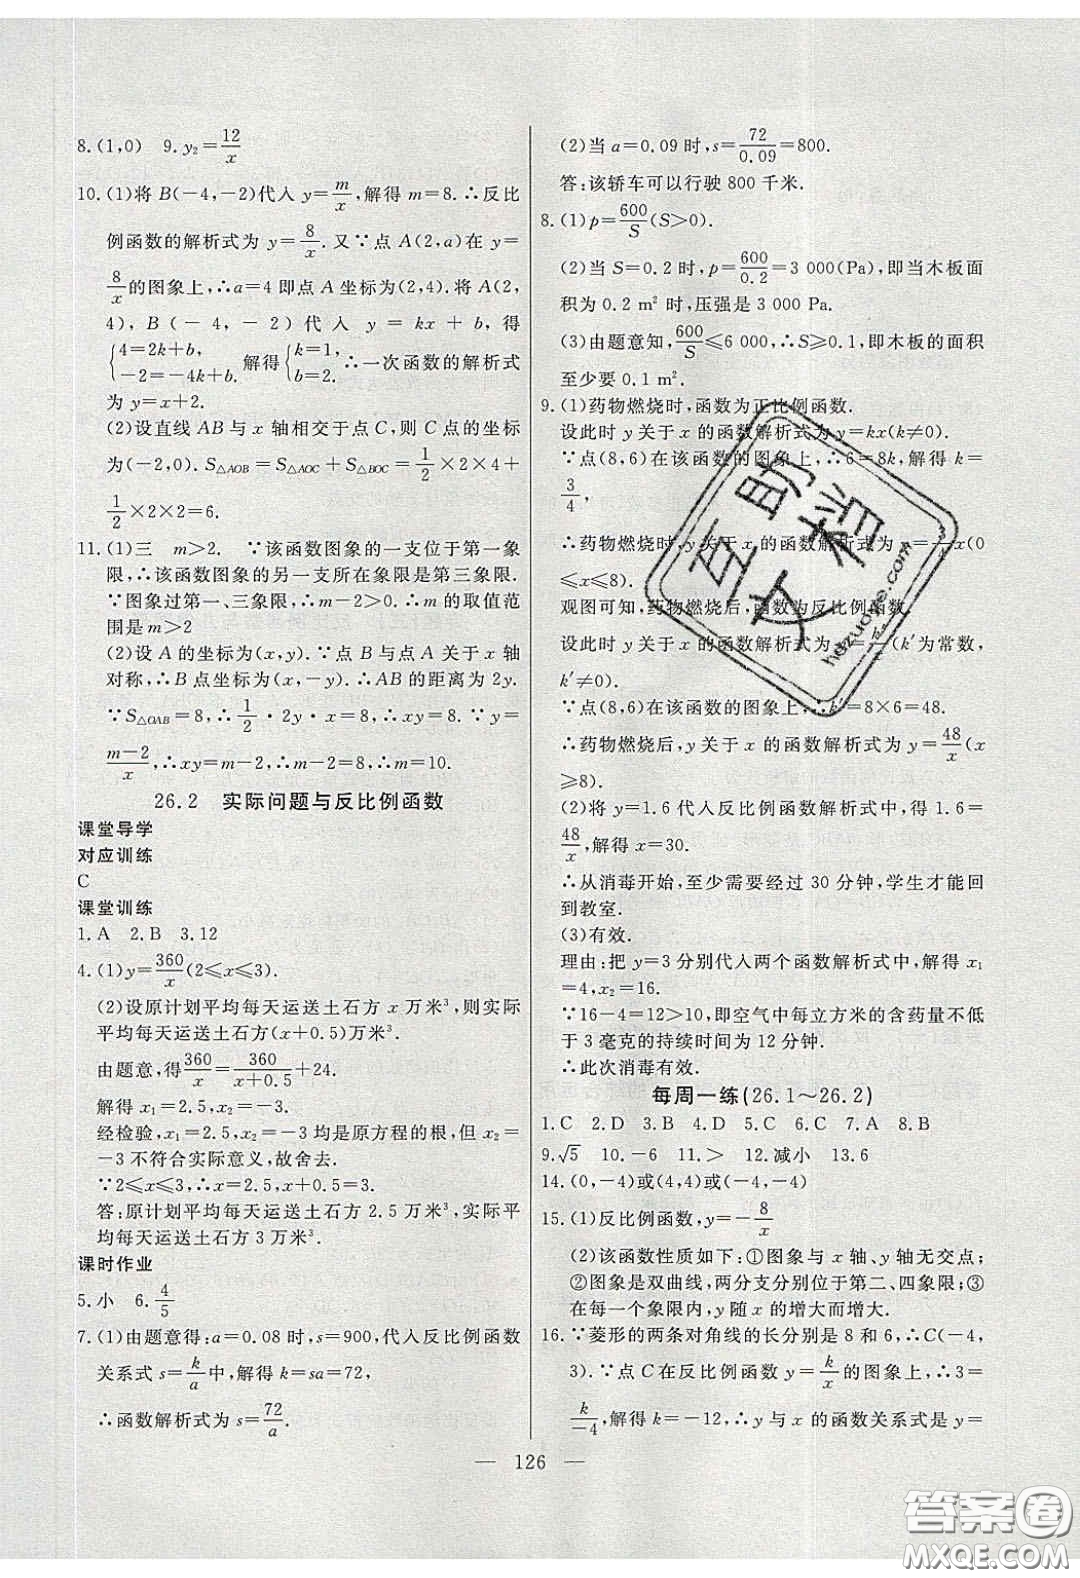 8.(1,0)　9.y₂=12/x
10.(1)将 B(-4,-2)代入 y=m/x,解得 m=8.∴反比
例函数的解析式为 y=8/x.又∵点 A(2,a)在 y=
8/x的图象上,∴a=4 即点 A 坐标为(2,4).将 A(2,
4),B(-4,-2)代入 y=kx+b,得
{4=2k+b, -2=-4k+b. 解得{k=1, b=2. ∴一次函数的解析式
为 y=x+2.
(2)设直线 AB 与 x 轴相交于点 C,则 C 点的坐标
为(-2,0).S△AOB=S△AOC+S△BOC=1/2×2×4+
1/2×2×2=6.
11.(1)三　m>2.　∵该函数图象的一支位于第一象
限,∴该函数图象的另一支所在象限是第三象限.
∵图象过第一、三象限,∴m-2>0.∴m 的取值范
围是 m>2
(2)设 A 的坐标为(x,y).∵点 B 与点 A 关于 x 轴
对称,∴B 点坐标为(x,-y).∴AB 的距离为 2y.
∵S△OAB=8,∴1/2·2y·x=8,∴xy=8.∵y=
m-2/x,∴xy=m-2,∴m-2=8,∴m=10.
26.2　实际问题与反比例函数
课堂导学
对应训练
C
课堂训练
1.A　2.B　3.12
4.(1)y=360/x(2≤x≤3).
(2)设原计划平均每天运送土石方 x 万米³,则实际
平均每天运送土石方(x+0.5)万米³.
由题意,得360/x=360/x+0.5+24.
解得 x₁=2.5,x₂=-3.
经检验,x₁=2.5,x₂=-3 均是原方程的根,但 x₂=
-3 不符合实际意义,故舍去.
∵2≤x≤3,∴x=2.5,x+0.5=3.
答:原计划平均每天运送土石方 2.5 万米³,实际平
均每天运送土石方 3 万米³.
课时作业
5.小　6.4/5
7.(1)由题意得:a=0.08 时,s=900,代入反比例函数
关系式 s=k/a中,解得:k=sa=72,
∴函数解析式为 s=72/a.
(2)当 a=0.09 时,s=72/0.09=800.
答:该轿车可以行驶 800 千米.
8.(1)p=600/S(S>0).
(2)当 S=0.2 时,p=600/0.2=3 000(Pa),即当木板面
积为 0.2 m² 时,压强是 3 000 Pa.
(3)由题意知,600/S≤6 000,∴S≥0.1,即木板的面积
至少要 0.1 m².
9.(1)药物燃烧时,函数为正比例函数.
设此时 y 关于 x 的函数解析式为 y=kx(k≠0).
∵点(8,6)在该函数的图象上,∴6=8k,解得 k=
3/4,
∴药物燃烧时,y 关于 x 的函数解析式为 y= x(0
≤x≤8).
观图可知,药物燃烧后,函数为反比例函数,
设此时 y 关于 x 的函数解析式为 y= (k′为常数,
k′≠0).
∵点(8,6)在该函数的图象上,∴k′=8×6=48.
∴药物燃烧后,y 关于 x 的函数解析式为 y=48/x(x
≥8).
(2)将 y=1.6 代入反比例函数解析式中,得 1.6=
48/x,解得 x=30.
∴从消毒开始,至少需要经过 30 分钟,学生才能回
到教室.
(3)有效.
理由:把 y=3 分别代入两个函数解析式中,解得 x₁
=4,x₂=16.
∵16-4=12>10,即空气中每立方米的含药量不低
于 3 毫克的持续时间为 12 分钟.
∴此次消毒有效.
每周一练(26.1～26.2)
1.C　2.D　3.B　4.D　5.C　6.C　7.A　8.B
9.√5　10.-6　11.>　12.减小　13.6
14.(0,-4)或(4,4)或(-4,-4)
15.(1)反比例函数,y=-8/x
(2)该函数性质如下:①图象与 x 轴、y 轴无交点;
②图象是双曲线,两分支分别位于第二、四象限;③
在每一个象限内,y 随 x 的增大而增大.
16.∵菱形的两条对角线的长分别是 8 和 6,∴C(-4,
3).∵点 C 在反比例函数 y=k/x的图象上,∴3=
k/-4,解得 k=-12,∴y 与 x 的函数关系式是 y=
— 126 —
互助文档
hdzuoye.com
答案圈
MXQE.COM